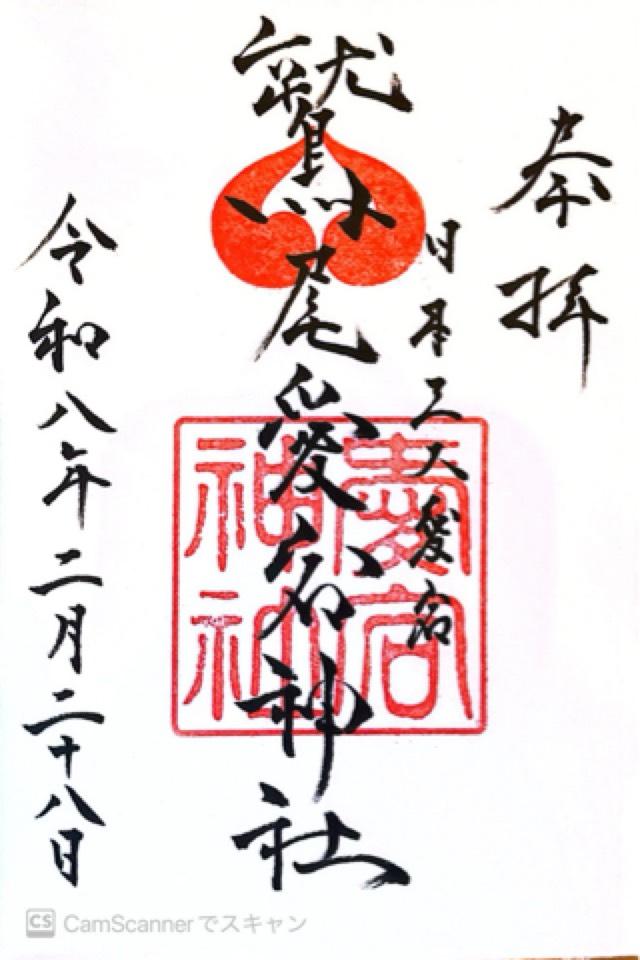 奉拝
日本三大愛宕
鷲尾愛宕神社
愛宕
神社
令和八年二月二十八日
CS CamScannerでスキャン